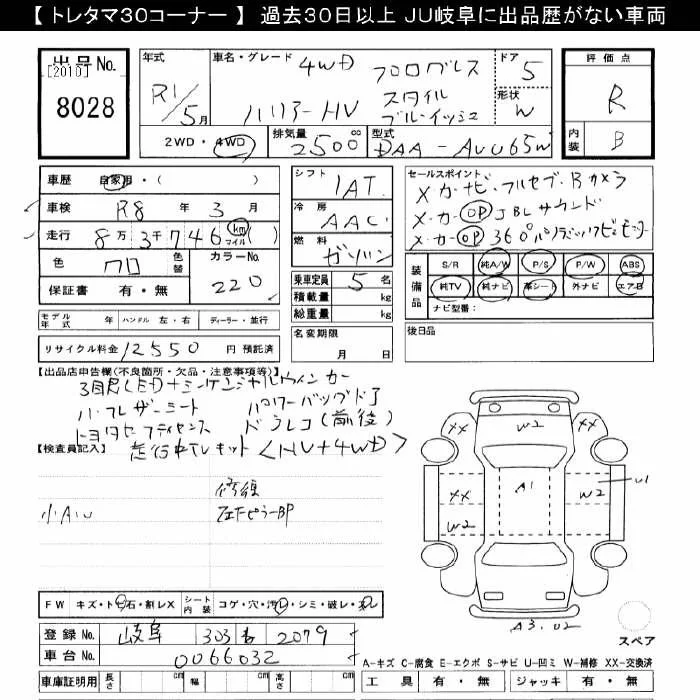 【 トレタマ30コーナー 】 過去30日以上 JU岐阜に出品歴がない車両
出品No.
[2010]
8028
年式 R1/5月
車名・グレード 4WD プログレス
ハリアーHV スタイル
ブルーイッシュ
ドア 5
形状 W
2WD・4WD 排気量 2500 cc 型式 DAA-AVU65W
評価点 R
内装 B
車歴 自家用・( )
車検 R8 年 3 月
走行 8万3千746 km マイル ( )
色 クロ 色替 カラーNo. 220
保証書 有・無
シフト IAT
冷房 AAC
燃料 ガソリン
乗車定員 5 名
積載量 kg
総重量 kg
名変期限 月 日
セールスポイント
メーカーナビ・フルセグ・Bカメラ
メーカーOP JBLサウンド
メーカーOP 360°パノラミックビューモニター
装備品 S/R 純A/W P/S P/W ABS
純TV 純ナビ 革シート 外ナビ エアB
ナビ型番：
モデル年式 年 ハンドル 左・右 ディーラー・並行
後日品
リサイクル料金 12550 円 預託済
【出品店申告欄(不良箇所・欠品・注意事項等)】
3眼LED+シーケンシャルウィンカー
ハーフレザーシート パワーバックドア
トヨタセーフティセンス ドラレコ(前後)
走行中TVキット <HV+4WD>
【検査員記入】
修復
小AU 左Fピラー BP
XX W2 XX
A1
XX W2 U1
W2
A3.U2
スペア
FW キズ・ト・石・割レX シート内装 コゲ・穴・汚レ・シミ・破レ・スレ
登録No. 岐阜 303 も 2079
車台No. 0066032
車庫証明用 長さ cm 幅 cm 高さ cm
A-キズ C-腐食 E-エクボ S-サビ U-凹ミ W-補修 XX-交換済
工具 有・無 ジャッキ 有・無